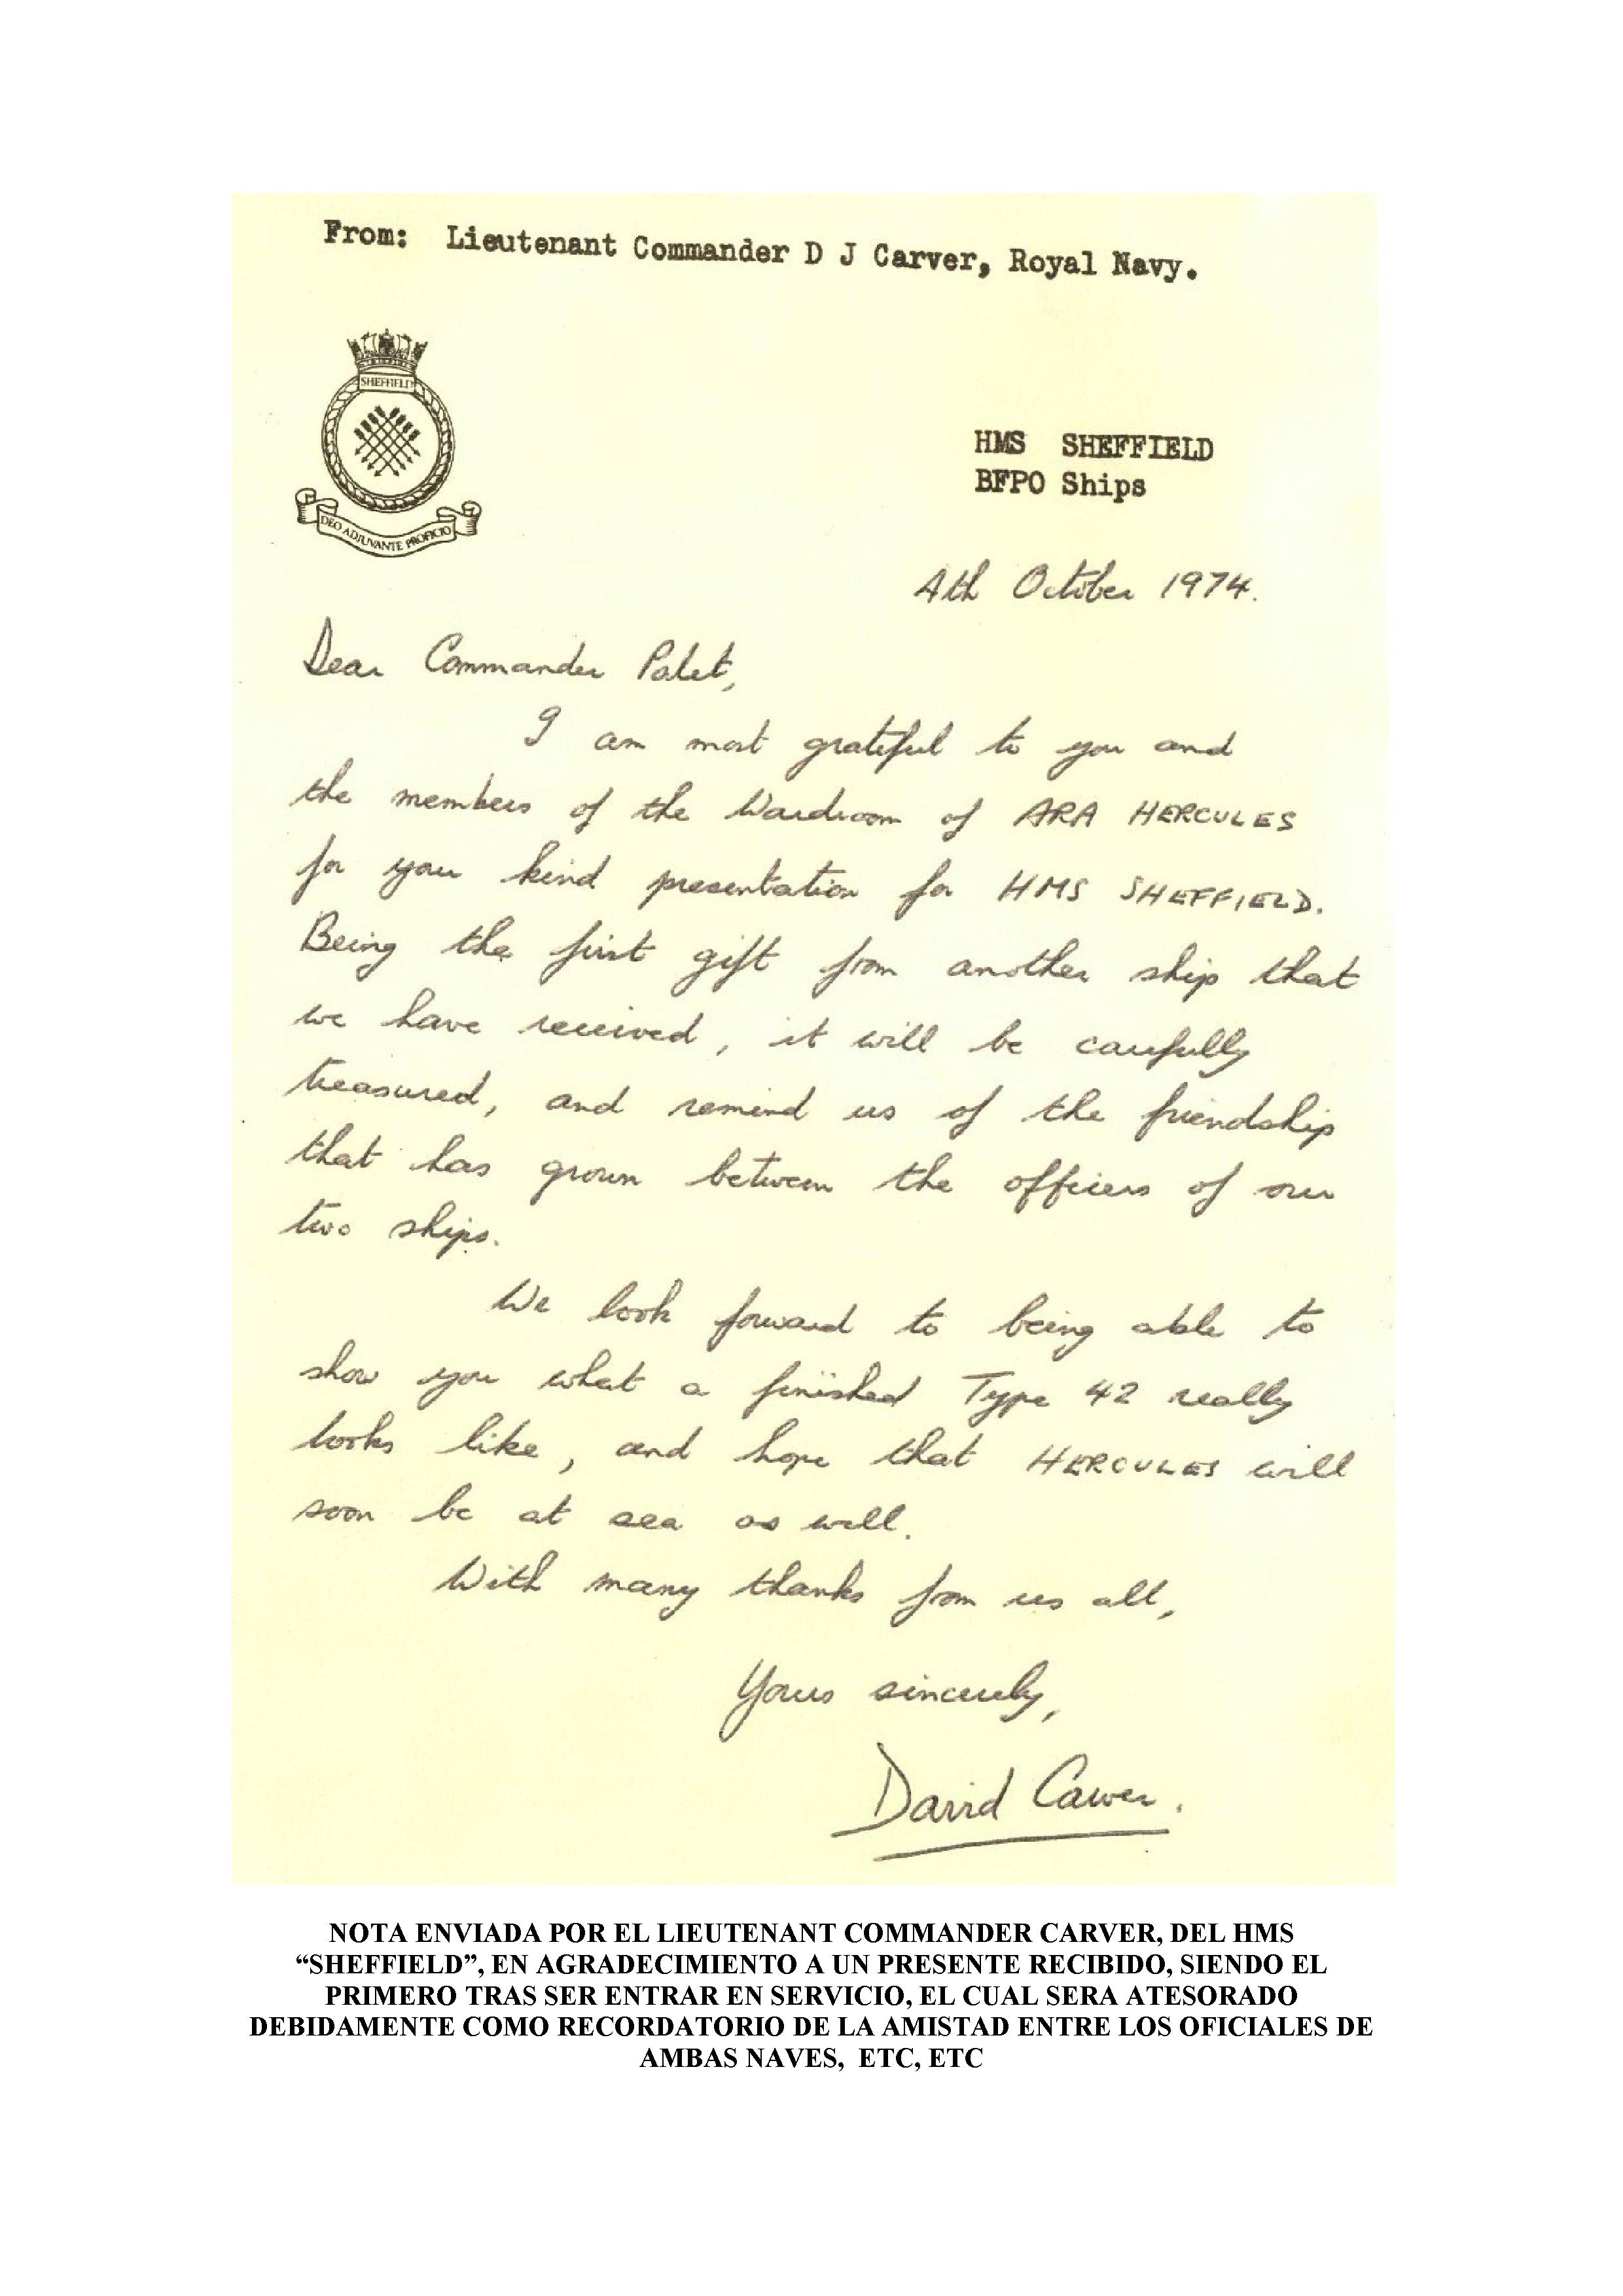 From: Lieutenant Commander D J Carver, Royal Navy.
SHEFFIELD
DEO ADJUVANTE PROFICIO
HMS SHEFFIELD
BFPO Ships
4th October 1974.
Dear Commander Palet,
I am most grateful to you and
the members of the Wardroom of ARA HERCULES
for your kind presentation for HMS SHEFFIELD.
Being the first gift from another ship that
we have received, it will be carefully
treasured, and remind us of the friendship
that has grown between the officers of our
two ships.
We look forward to being able to
show you what a finished Type 42 really
looks like, and hope that HERCULES will
soon be at sea as well.
With many thanks from us all,
Yours sincerely,
David Carver.
NOTA ENVIADA POR EL LIEUTENANT COMMANDER CARVER, DEL HMS
“SHEFFIELD”, EN AGRADECIMIENTO A UN PRESENTE RECIBIDO, SIENDO EL
PRIMERO TRAS SER ENTRAR EN SERVICIO, EL CUAL SERA ATESORADO
DEBIDAMENTE COMO RECORDATORIO DE LA AMISTAD ENTRE LOS OFICIALES DE
AMBAS NAVES, ETC, ETC